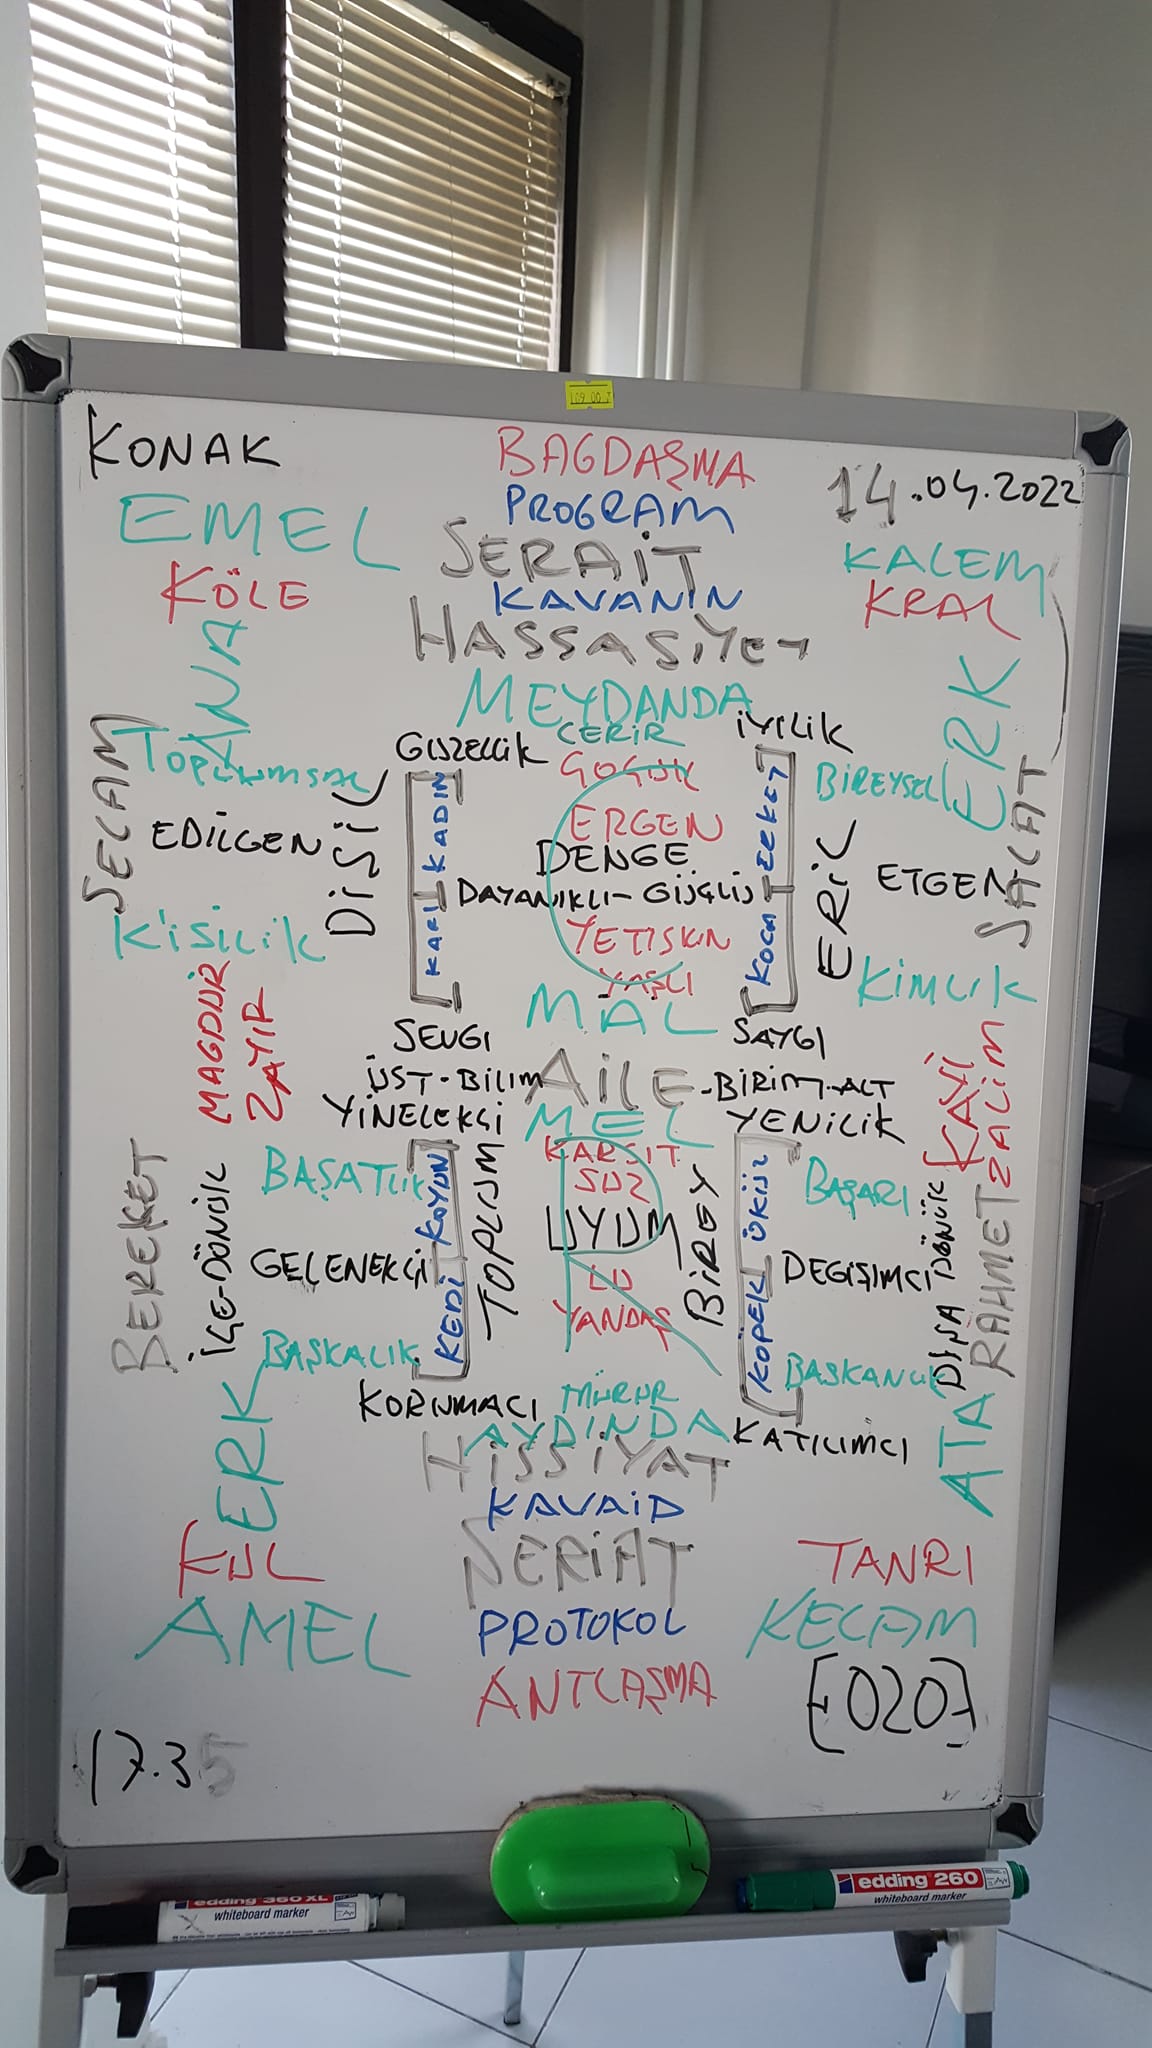 KONAK
BAGDAŞMA
14.04.2022
EMEL
PROGRAM
KALEM
KÖLE
SERAİT
KRAL
KAVANIN
HASSASİYET
ANA
ERK
MEYDANDA
CERİR
GÜZELLİK
İYİLİK
TOPLUMSAL
BİREYSEL
SELAM
SALAT
EDİLGEN
DİŞİL
KADIN
ERGEN
DENGE
ERKEK
ERİL
ETGEN
DAYANIKLI-GÜÇLÜ
KİŞİLİK
KARI
YETİŞKİN
YAŞLI
KOCA
KİMLİK
MAL
MAGDUR
ZAYIF
SEVGİ
SAYGI
KAVİ
ZALİM
ÜST-BİLİM
AİLE
-BİRİM-ALT
YİNELEKÇİ
MEL
YENİLİK
KARŞIT
BAŞATLIK
KOYUN
TOPLUM
SÜZ
UYUM
BİRGY
ÖKÜZ
BAŞARI
BEREKET
İÇE-DÖNÜK
GELENEKÇİ
KEDİ
LÜ
YANDAŞ
KÖPEK
DEGİŞİMCİ
DIŞA DÖNÜK
RAHMET
BAŞKALIK
BAŞKANLIK
KORUMACI
MÜRUR
AYDINDA
KATILIMCI
ERK
HİSSİYAT
ATA
KAVAİD
KUL
ŞERİAT
TANRI
AMEL
PROTOKOL
KELAM
ANTLAŞMA
[020]
17.35
edding 360 XL
whiteboard marker
edding 260
whiteboard marker